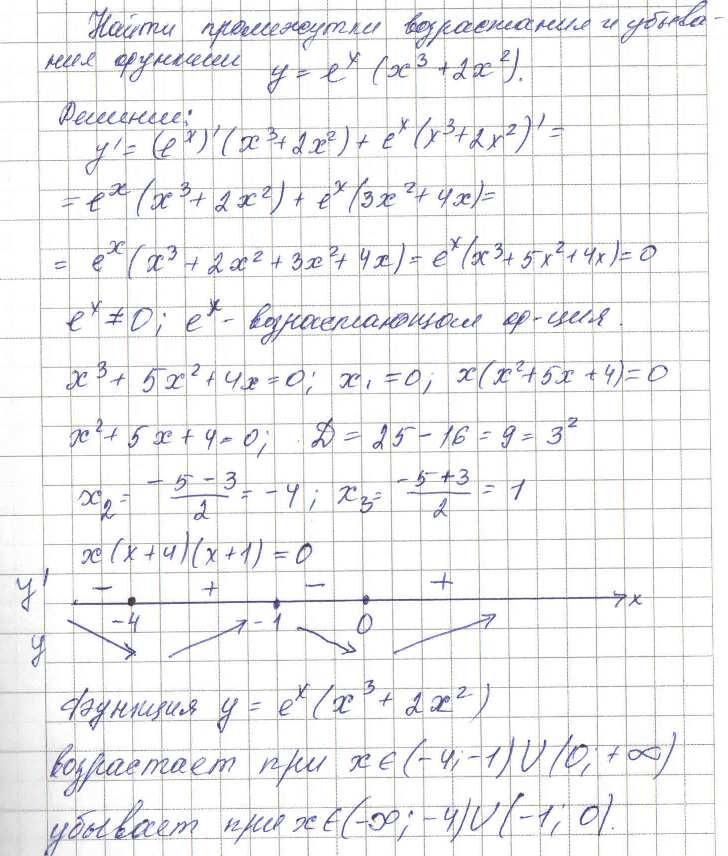 Найти промежутки возрастания и убыва-
ния функции y = eˣ (x³ + 2x²).
Решение:
y' = (eˣ)'(x³ + 2x²) + eˣ(x³ + 2x²)' =
= eˣ (x³ + 2x²) + eˣ (3x² + 4x) =
= eˣ (x³ + 2x² + 3x² + 4x) = eˣ(x³ + 5x² + 4x) = 0
eˣ ≠ 0; eˣ - возрастающая ф-ция.
x³ + 5x² + 4x = 0; x₁ = 0; x(x² + 5x + 4) = 0
x² + 5x + 4 = 0; D = 25 - 16 = 9 = 3²
x₂ = (-5 - 3)/2 = -4; x₃ = (-5 + 3)/2 = 1
x (x + 4)(x + 1) = 0
y' - + - +
-4 -1 0 x
y
Функция y = eˣ (x³ + 2x²)
возрастает при x ∈ (-4; -1) ∪ (0; +∞)
убывает при x ∈ (-∞; -4) ∪ (-1; 0).